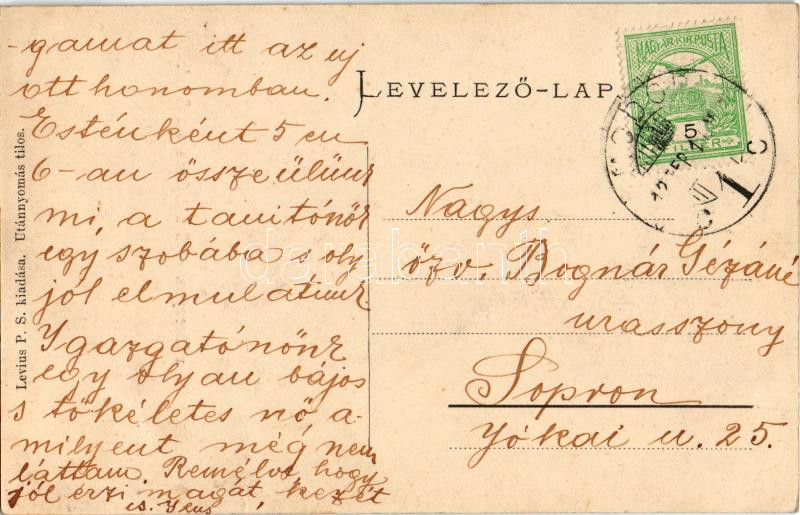 -gamat itt az uj
otthonomban.
Esténként 5 en
6-an összeülünk
mi, a tanitónők
egy szobába s oly
jól elmulatunk.
Igazgatónőnk
egy olyan bájos
s tökéletes nő a-
milyent még nem
láttam. Remélve, hogy
jól érzi magát, kezét
is.
Levius P. S. kiadása. Utánnyomás tilos.
LEVELEZŐ-LAP
MAGYAR KIR. POSTA
5
FILLÉR
SOPRON
Nagys.
özv. Bognár Gézáné
urasszony
Sopron
Jókai u. 25.
darabanth